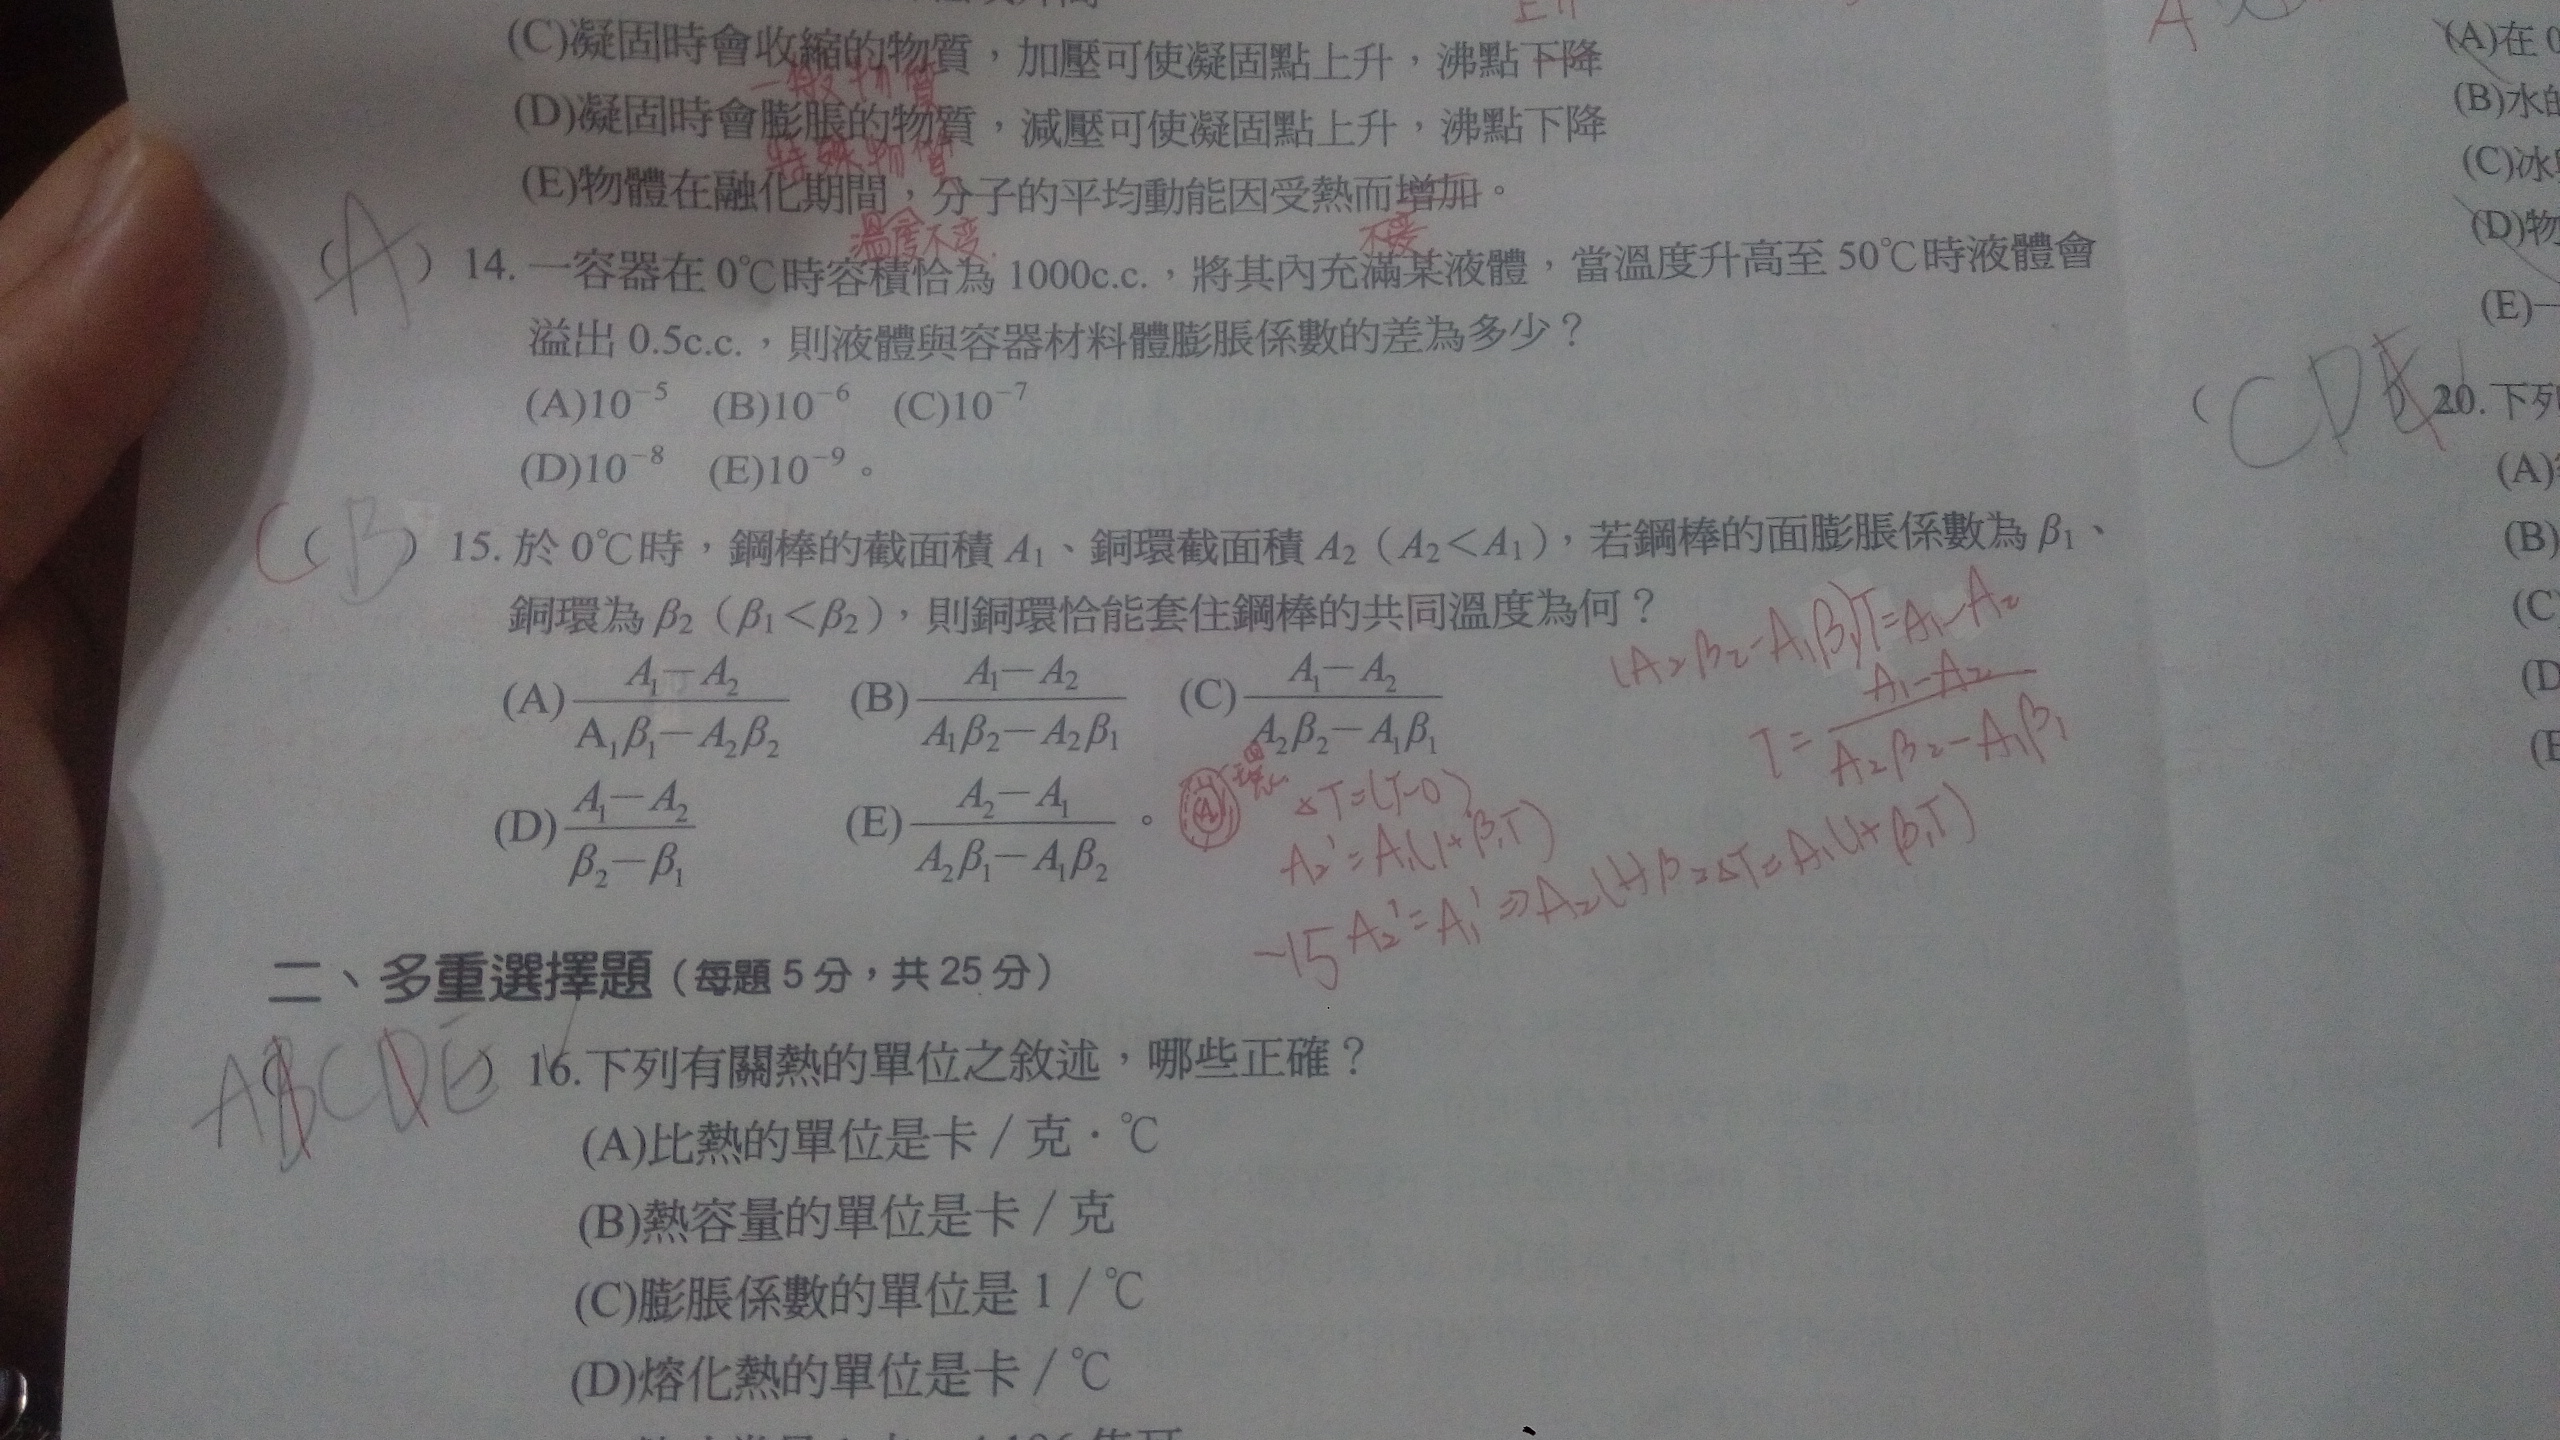 上升
(C)凝固時會收縮的物質，加壓可使凝固點上升，沸點下降
一般物質
(D)凝固時會膨脹的物質，減壓可使凝固點上升，沸點下降
特殊物質
(E)物體在融化期間，分子的平均動能因受熱而增加。
溫度不变.
不变
(A) 14. 一容器在 0℃時容積恰為 1000c.c.，將其內充滿某液體，當溫度升高至 50℃時液體會
溢出 0.5c.c.，則液體與容器材料體膨脹係數的差為多少？
(A)10⁻⁵ (B)10⁻⁶ (C)10⁻⁷
(D)10⁻⁸ (E)10⁻⁹。
C (B) 15. 於 0℃時，鋼棒的截面積 A₁、銅環截面積 A₂（A₂＜A₁），若鋼棒的面膨脹係數為 β₁、
銅環為 β₂（β₁＜β₂），則銅環恰能套住鋼棒的共同溫度為何？
(A) (A₁－A₂)/(A₁β₁－A₂β₂) (B) (A₁－A₂)/(A₁β₂－A₂β₁) (C) (A₁－A₂)/(A₂β₂－A₁β₁)
(D) (A₁－A₂)/(β₂－β₁) (E) (A₂－A₁)/(A₂β₁－A₁β₂)。
(A₂β₂-A₁β₁)T=A₁-A₂
T=(A₁-A₂)/(A₂β₂-A₁β₁)
△T=(T-0)
A₂'=A₁(1+β₁T)
-15 A₂'=A₁'⇒A₂(1+β₂△T=A₁(1+β₁T)
二、多重選擇題（每題 5 分，共 25 分）
(ABCDE) 16.下列有關熱的單位之敘述，哪些正確？
(A)比熱的單位是卡／克．℃
(B)熱容量的單位是卡／克
(C)膨脹係數的單位是 1／℃
(D)熔化熱的單位是卡／℃
A
(A)在 0
(B)水的
(C)冰
(D)物
(E)一
(CDE) 20.下列
(A)
(B)
(C)
(D
(E